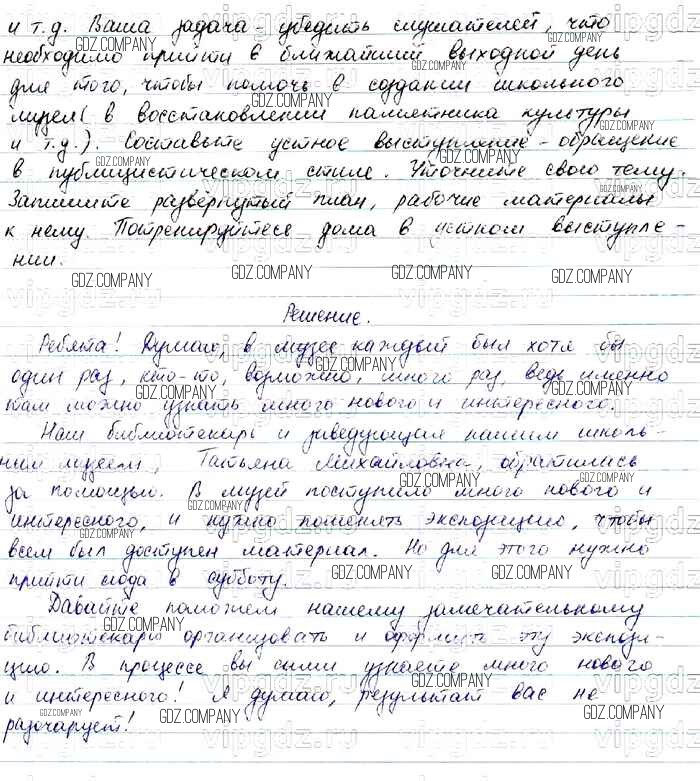 и т.д. Ваша задача убедить слушателей, что
необходимо прийти в ближайший выходной день
для того, чтобы помочь в создании школьного
музея (в восстановлении памятника культуры
и т.д.). Составьте устное выступление - обращение
в публицистическом стиле. Уточните свою тему.
Запишите развёрнутый план, рабочие материалы
к нему. Потренируйтесь дома в устном выступле-
нии.
Решение.
Ребята! Думаю, в музее каждый был хотя бы
один раз, кто-то, возможно, много раз, ведь именно
там можно узнать много нового и интересного.
Наш библиотекарь и заведующая нашим школь-
ным музеем, Татьяна Михайловна, обратились
за помощью. В музей поступило много нового и
интересного, и нужно поменять экспозицию, чтобы
всем был доступен материал. Но для этого нужно
прийти сюда в субботу.
Давайте поможем нашему замечательному
библиотекарю организовать и оформить эту экспози-
цию. В процессе вы сами узнаете много нового
и интересного! Я думаю, результат вас не
разочарует!